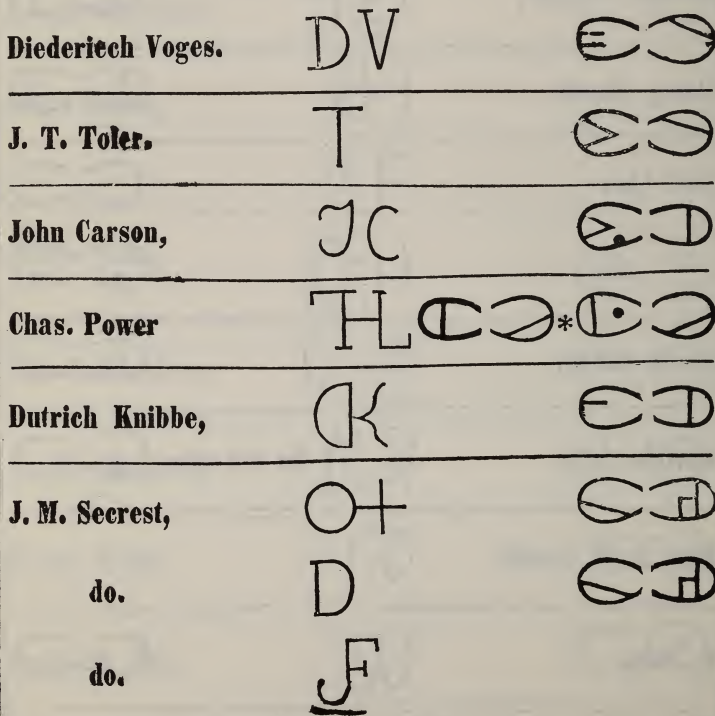 Diederiech Voges. DV
J. T. Toler. T
John Carson, JC
Chas. Power THL *
Dutrich Knibbe, DK
J. M. Secrest, O+
do. D
do. JF